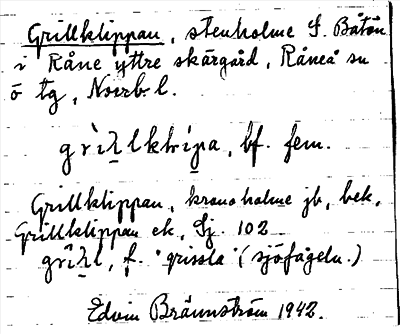 Grillklippan, stenholme S. Båtön
i Råne yttre skärgård, Råneå sn
o tg, Norrb. l.
gri̱lklipa, bf. fem.
Grillklippan, kronoholme jb, bek.
Grillklippan ek, Sj. 102
gril, f. "grissla" (sjöfågeln.)
Edvin Brännström 1942.